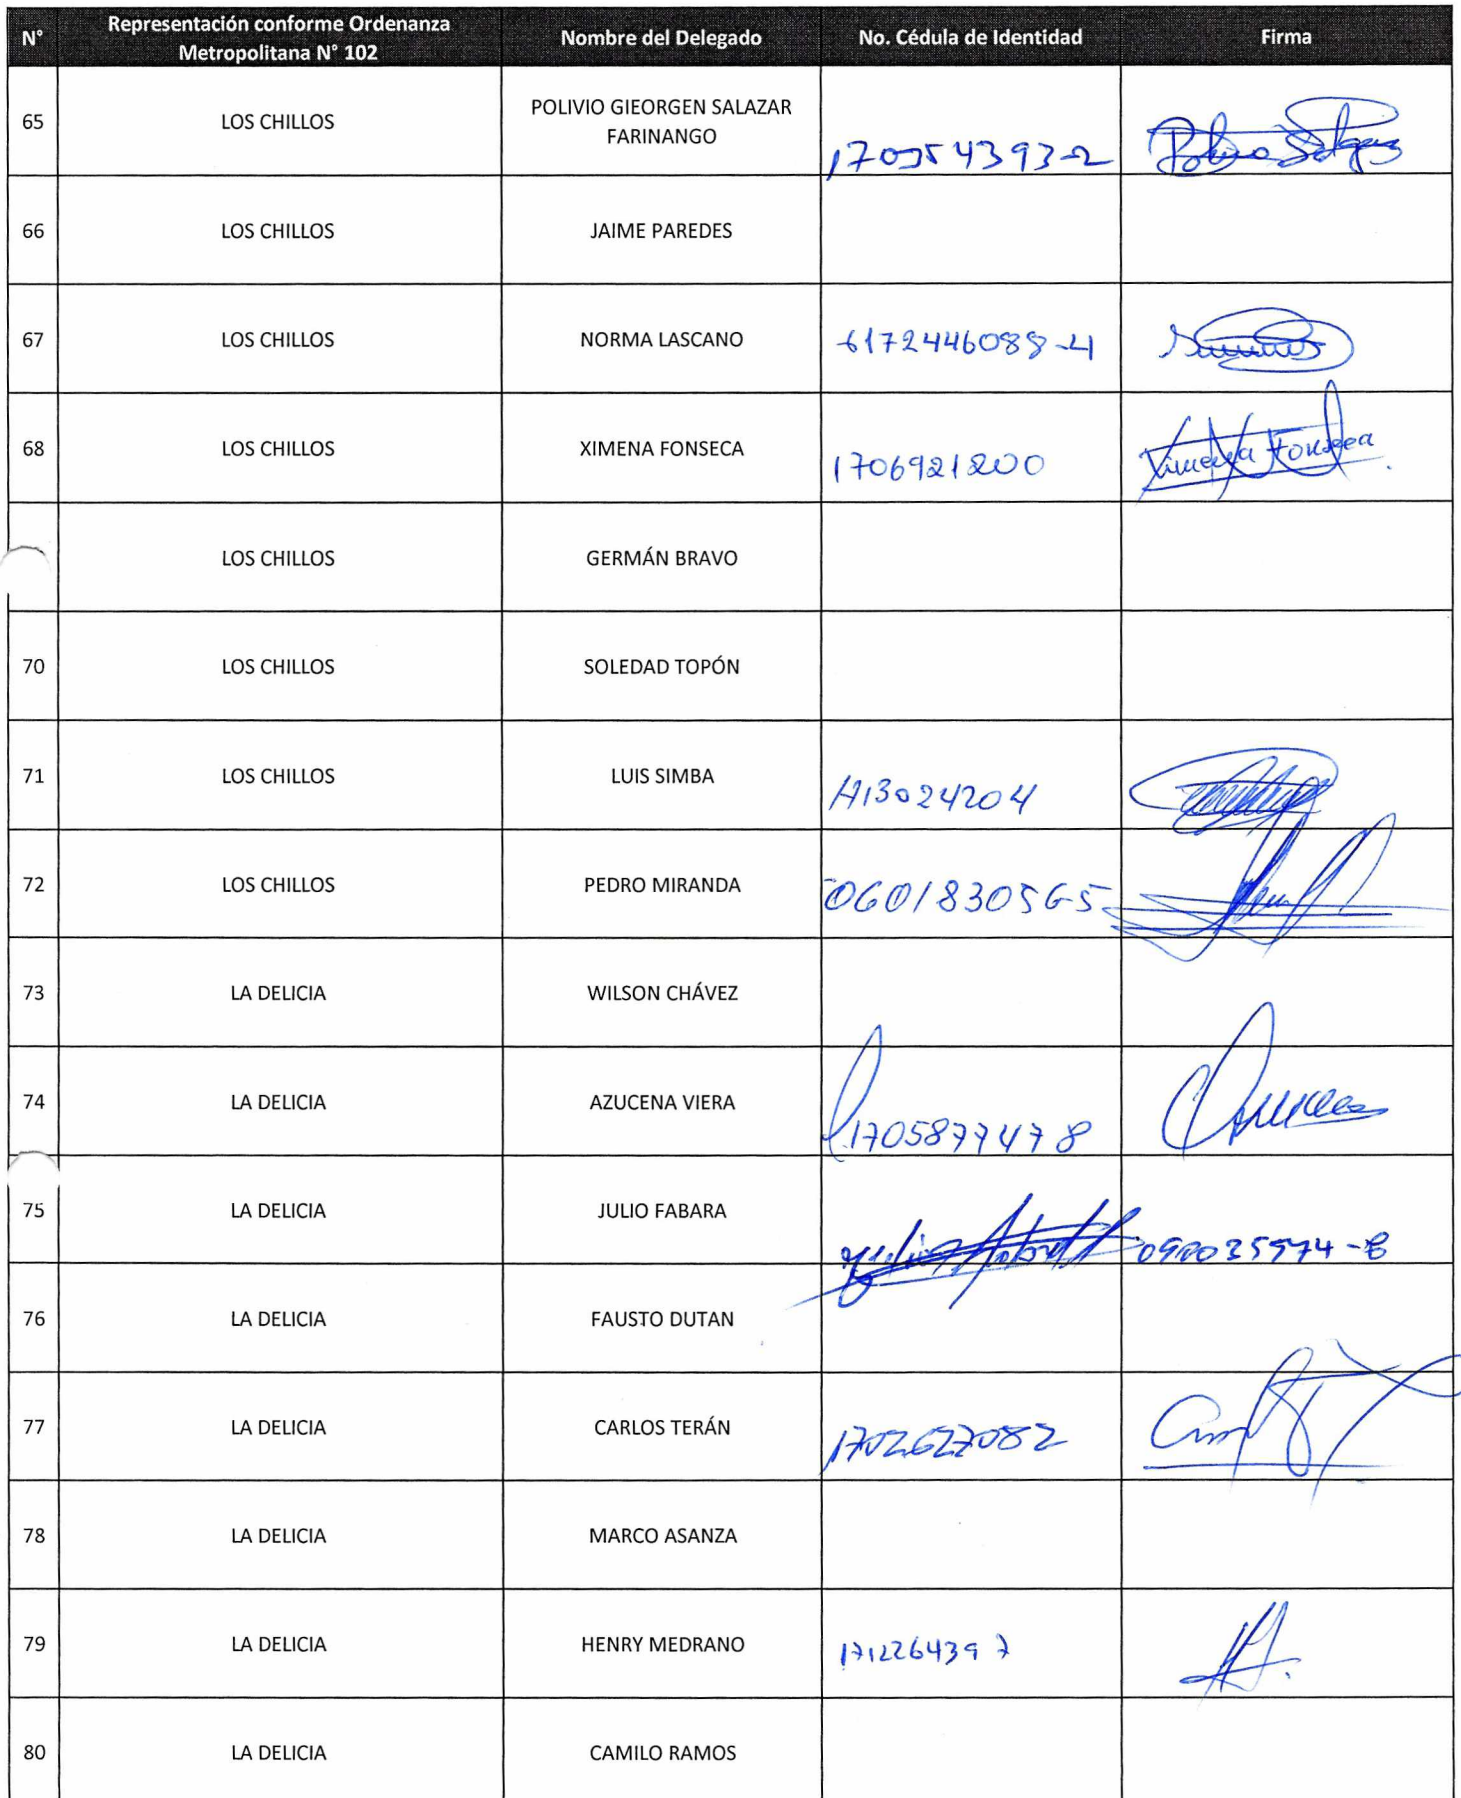 N°
Representación conforme Ordenanza
Metropolitana N° 102
Nombre del Delegado
No. Cédula de Identidad
Firma
65
LOS CHILLOS
POLIVIO GIEORGEN SALAZAR
FARINANGO
66
LOS CHILLOS
JAIME PAREDES
67
LOS CHILLOS
NORMA LASCANO
68
LOS CHILLOS
XIMENA FONSECA
1706921200
Ximena Fonseca
LOS CHILLOS
GERMÁN BRAVO
70
LOS CHILLOS
SOLEDAD TOPÓN
71
LOS CHILLOS
LUIS SIMBA
72
LOS CHILLOS
PEDRO MIRANDA
060183056-5
73
LA DELICIA
WILSON CHÁVEZ
74
LA DELICIA
AZUCENA VIERA
1705877478
75
LA DELICIA
JULIO FABARA
76
LA DELICIA
FAUSTO DUTAN
77
LA DELICIA
CARLOS TERÁN
1702627082
78
LA DELICIA
MARCO ASANZA
79
LA DELICIA
HENRY MEDRANO
1712264397
80
LA DELICIA
CAMILO RAMOS